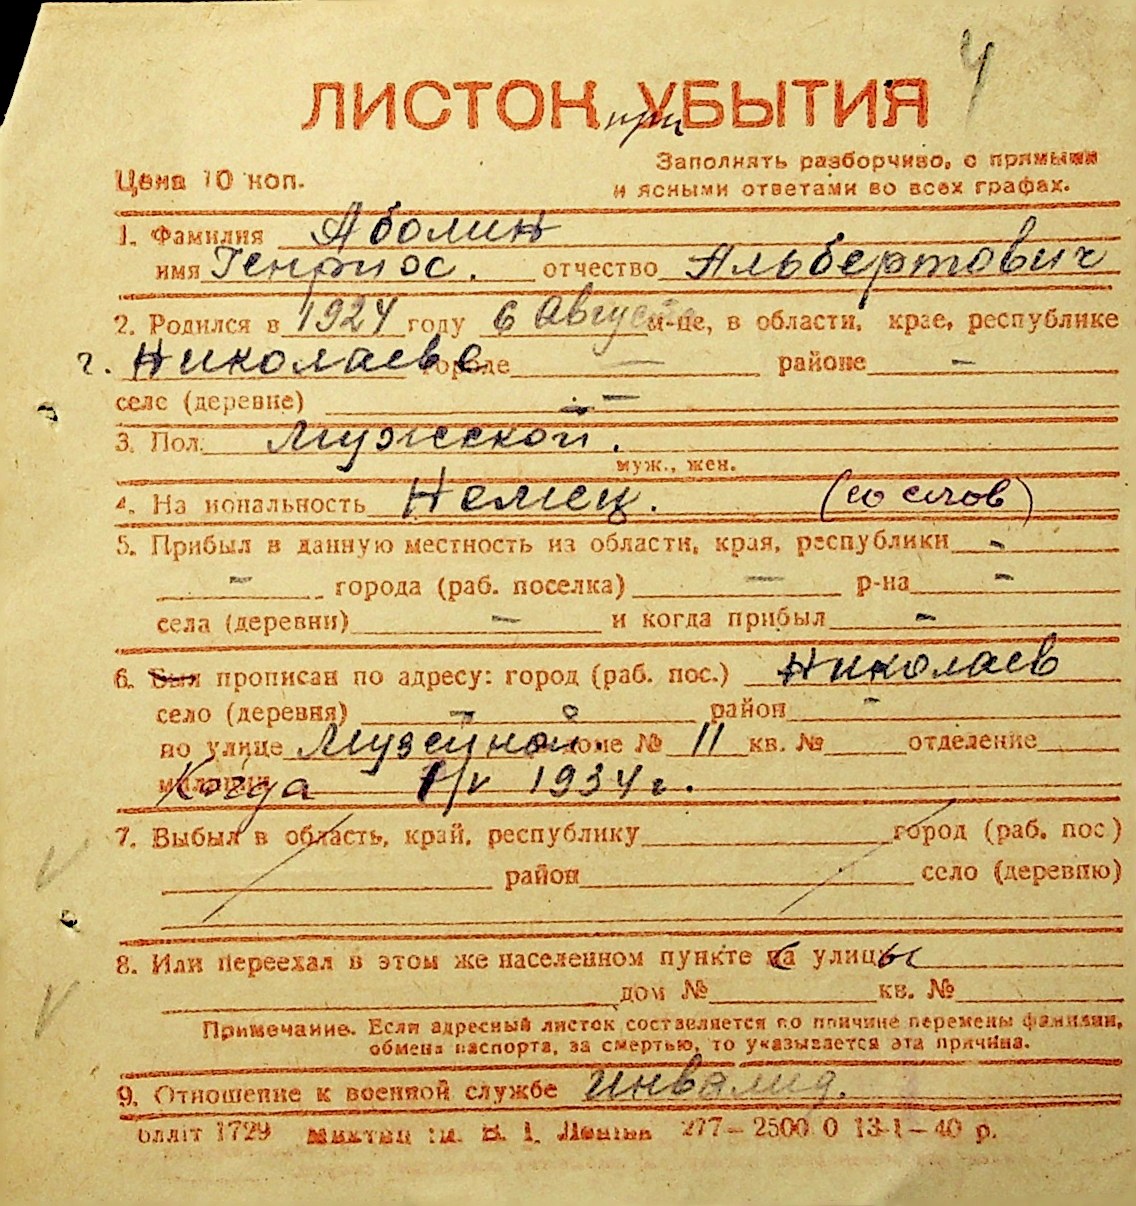 4
ЛИСТОК при УБЫТИЯ
Цена 10 коп.
Заполнять разборчиво, с прямыми
и ясными ответами во всех графах.
1. Фамилия Аболин
имя Генриос. отчество Альбертович
2. Родился в 1924 году 6 Августа м-це, в области, крае, республике
г. Николаеве городе — районе —
селе (деревне) —
3. Пол. Мужской.
муж., жен.
4. На иональность Немец. (со слов)
5. Прибыл в данную местность из области, края, республики -
- города (раб. поселка) — р-на -
села (деревни) — и когда прибыл -
6. Был прописан по адресу: город (раб. пос.) Николаев
село (деревня) - район -
по улице Музейной доме № 11 кв. № отделение
милиции Когда 1/V 1934 г.
7. Выбыл в область, край, республику город (раб. пос)
район село (деревню)
8. Или переехал в этом же населенном пункте с улицы
дом № кв. №
Примечание. Если адресный листок составляется по причине перемены фамилии,
обмена паспорта, за смертью, то указывается эта причина.
9. Отношение к военной службе инвалид.
олліт 1729 277–2500 0 13-1–40 р.